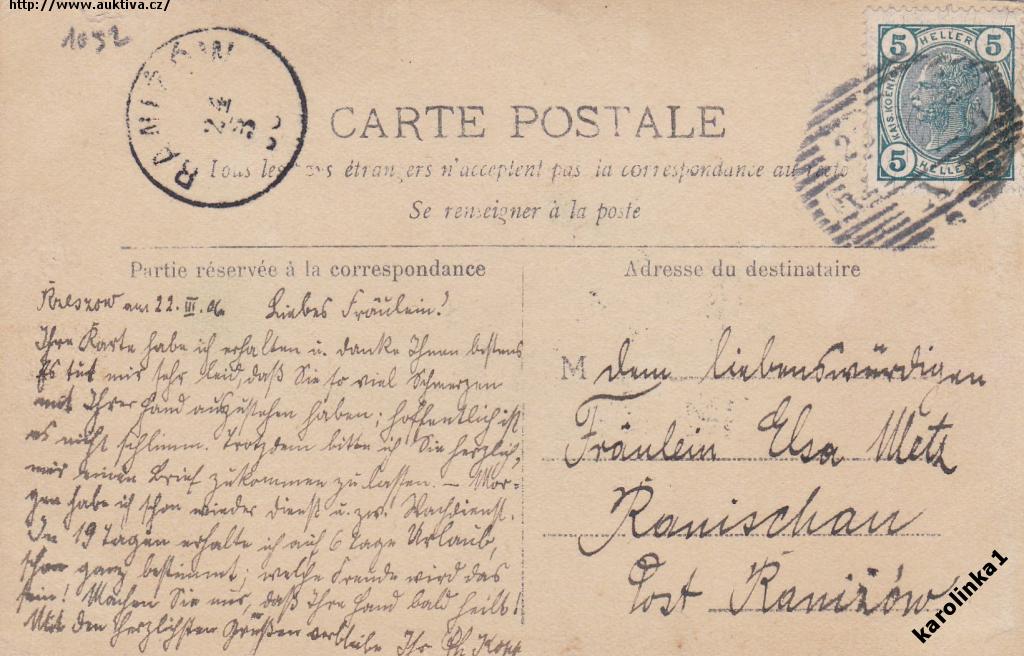 http://www.auktiva.cz/
1092
RANIŻÓW
24
3
5 HELLER 5
KAIS.KOENIG
5 HELLER 5
CARTE POSTALE
Tous les pays étrangers n'acceptent pas la correspondance au recto
Se renseigner à la poste
Partie réservée à la correspondance
Rzeszow am 22. III. 06. Liebes Fräulein!
Ihre Karte habe ich erhalten u. danke Ihnen bestens
Es tut mir sehr leid, daß Sie so viel Schmerzen
mit Ihrer Hand auszustehen haben; hoffentlich ist
es nicht schlimm. Trotzdem bitte ich Sie herzlich,
mir einen Brief zukommen zu lassen. – Mor-
gen habe ich schon wieder Dienst u. zw. Nachdienst.
In 19 Tagen erhalte ich auf 6 Tage Urlaub,
schon ganz bestimmt; welche Freude wird das
sein! Machen Sie nur, daß Ihre Hand bald heilt!
Mit den herzlichsten Grüßen verbleibe Ihr Ph
Adresse du destinataire
M dem liebenswürdigen
Fräulein Elsa Metz
Ranischau
Post Raniżów
karolinka1